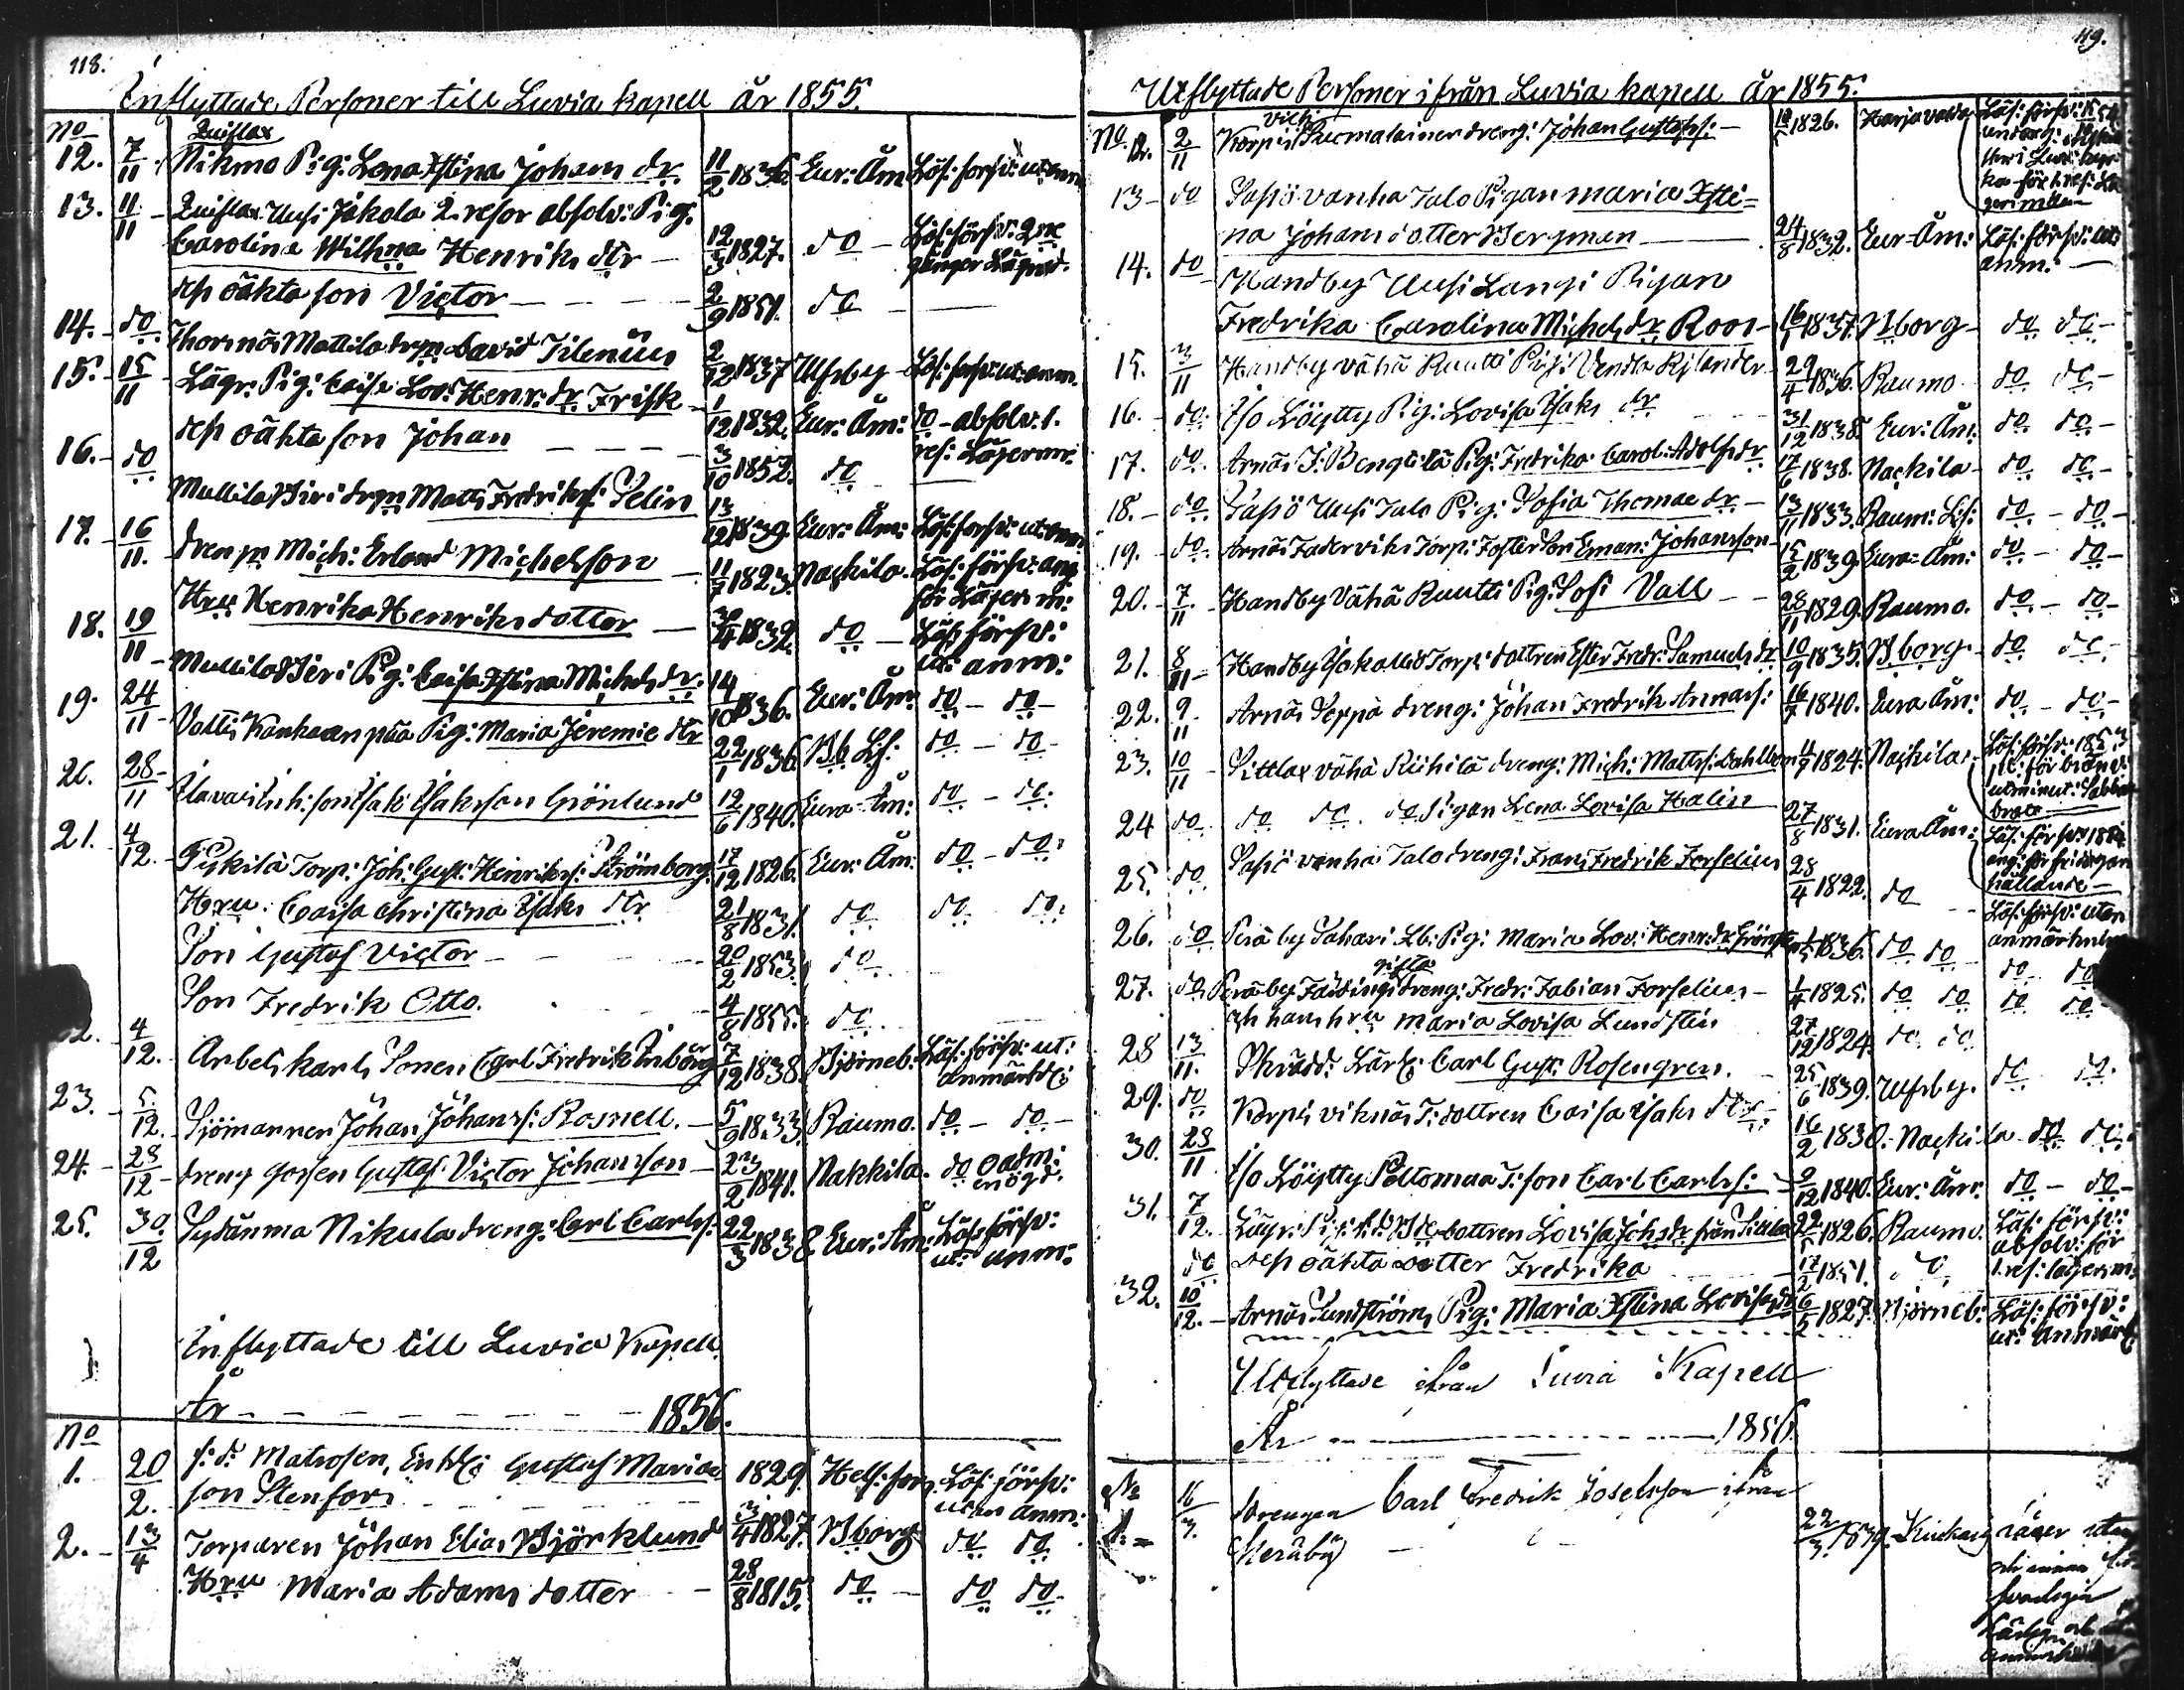 118.
Inflyttade Personer till Luvia kapell år 1855.
No
Quiflax
12. 7/11 Nikmo Pig: Lena Xstina Johans dr. 11/2 1836. Eur: Åm Läs: försv: ut: anm
13. 11/11 Quiflax Uusi Jakola 2 resor absolv: Pig:
Carolina Wilhna Henriks dtr 12/3 1827. do Läs: försv: 2ne
gånger
des oäkta son Victor 2/9 1851. do
14. do Thornäs Mattila drgn David Tilenius 2/12 1837 Ulfsby Läs: försv: ut: anm.
15. 15/11 Lägr: Pig: Caisa Lov: Henr: dr Frisk 1/12 1832. Eur: Åm: do absolv: 1.
res: Lägersm:
des oäkta son Johan 3/10 1852. do
16. do Mullila Siri drgn Matts Fredrikss: Selin 13/12 1839. Eur: Åm: Läs: försv: ut: anm
17. 16/11. Drengn Mich: Erland Michelson 11/7 1823. Nackila. Läs: försv: ang
för Lägersm:
Hru Henrika Henriksdotter 30/4 1832. do Läs: försv:
ut: anm:
18. 19/11 Mullila Sieri Pig: Caisa Xstina Michels dr: 14/10 1836. Eur: Åm: do do
19. 24/11 Vatti Kankaanpää Pig: Maria Jeremie dtr 22/1 1836 Bb Ls: do do
20. 28/11 Isak Isaksson Grönlund 12/6 1840. Eura Åm: do do
21. 4/12. Pykilä Torp: Joh: Gust: Henrikss: Strömberg 17/12 1826. Eur: Åm: do do
Hru Caisa Christina Isaks dtr 21/8 1831. do do do
Son Gustaf Victor 20/2 1853. do
Son Fredrik Otto. 4/8 1855. do
4/12. Arbets karls Sonen Carl Fredrik Inberg 7/12 1838. Björneb: Läs: försv: ut:
anmärkl:
23. 5/12. Sjömannen Johan Johanss: Rosnell. 5/9 1833. Raumo. do do
24. 28/12 dreng gossen Gustaf Victor Johansson 23/2 1841. Nakkila. do oadm:
25. 30/12 Sydänma Nikula dreng: Carl Carlss: 22/3 1838 Eur: Åm: Läs: försv:
ut: anm:
Inflyttade till Luvia Kapell
År 1856.
No
1. 20/2. f: d: Matrosen, Enkl: Gustaf Maria
son Stenfors 1829. Helf: fors Läs: försv:
utan anm:
2. 13/4 Torparen Johan Elias Björklund 3/4 1827. Bborg do do
Hru Maria Adams dotter 28/8 1815. do do do
119.
Utflyttade Personer ifrån Luvia kapell År 1855.
No 12. 2/11 Korpi dreng: Johan Gustafss: 1826. Harjavalda Läs: försv:
13 do Sassö vanha Talo Pigan Maria Xsti=
na Johans dotter Bergman 24/8 1832. Eur Åm: Läs: försv: ut:
anm:
14. do Handby Uusi Langi Pigan
Fredrika Carolina Michels dr Roos 1837. Bborg do do
15. 3/11 Handby vähä Ruutti Pig: Vendla Rylander 29/4 1836. Raumo do do
16. do: Iso Löytty Pig: Lovisa Isaks dr 31/12 1838. Eur: Åm: do do
17. do. Arnäs I: Bengtilä Pig: Fredrika Carol: Adolfs dr 17/6 1838. Nackila do do
18. do. Sassö Uusi Talo Pig: Sofia Thomae dr 13/11 1833. Raum: Ls: do do
19. do. Arnäs Torp: Foster Son Eman: Johansson 15/2 1839. Eura Åm: do do
20. 7/11 Handby Vähä Ruutti Pig: Sofi Vall 28/11 1829. Raumo. do do
21. 8/11 Handby Torp: dottren Ester Fredr: Samuels dr 10/9 1835. Bborg do do
22. 9/11 Arnäs Seppä dreng: Johan Fredrik Annass: 16/7 1840. Eura Åm: do do
23. 10/11 Sittlax vähä Riihilä dreng: Mich: Matts: Dahlbom 4/7 1824. Nackila. Läs: försv: 1853
24 do do do do Pigan Lena Lovisa Halin 27/8 1831. Eura Åm: Läs: försv:
25. do Sassö vanha Talo dreng: Frans Fredrik Forselius 28/4 1822. do Läs: försv: utan
anmärkning
26. do Peräby Sahari Lb: Pig: Maria Lov: Henr: dr 1836. do do do do
27. do Peräby gifta dreng: Fredr: Fabian Forselius 1/4 1825. do do do do
och hans hru Maria Lovisa Lundstén 27/12 1824. do do
28 13/11. Skrädd: Lärl: Carl Gust: Rosengren. 25/6 1839. Ulfsby. do do
29. do Korpi viknäs T: dottren Caisa Isaks dtr 16/2 1830. Nackila do do
30. 23/11 Iso Löytty Peltomaa T: son Carl Carlss: 9/12 1840. Eur: Åm: do do
31. 7/12. Lägr: Pig: dottren Lovisa Johs dr från 22/5 1826. Raumo. Läs: försv:
absolv: för
1. res: lägersm:
do des oäkta dotter Fredrika 17/2 1851. do
32. 10/12. Arnäs Sundströms Pig: Maria Xstina Lovisa dr 6/5 1827. Björneb: Läs: försv:
ut: Anmärk
Utflyttade ifrån Luvia Kapell
År 1856.
No
1: 16/3. Drengen Carl Fredrik Joselsson ifrån
Peräby 22/3 1839. läser utan